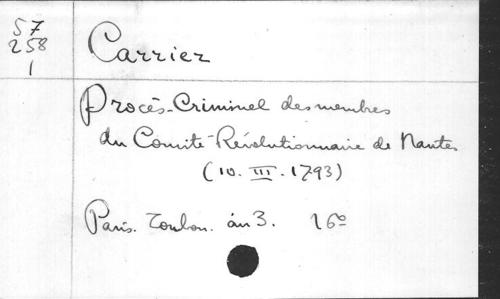 57
258
1
Carrier
Procès-Criminel des membres
du Comité Révolutionnaire de Nantes
(10. III. 1793)
Paris. Toubon. án 3. 16°